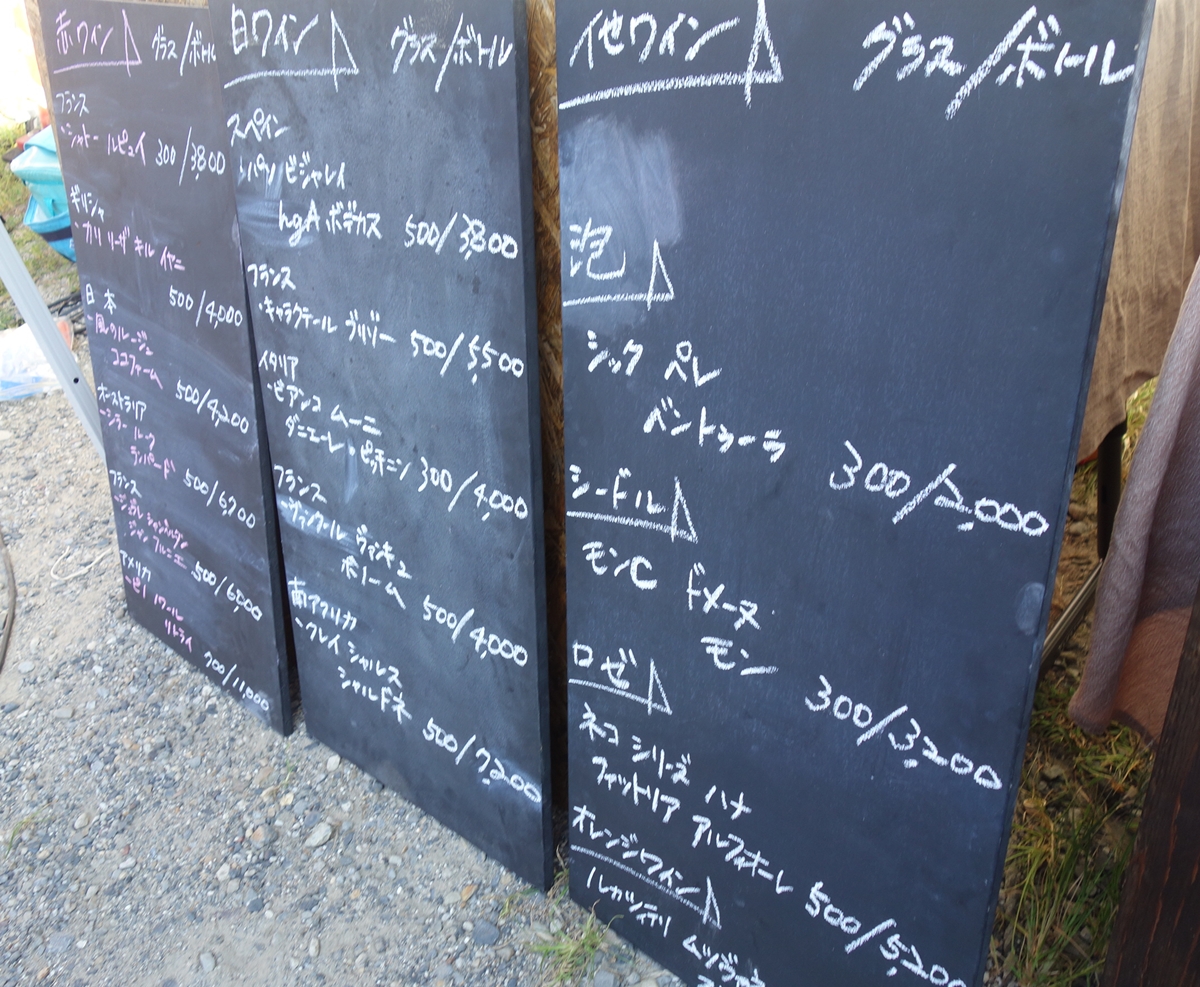 赤ワイン グラス/ボトル
フランス
・シャトー ルピュイ 300/3,800
ギリシャ
・カリ リーザ キル イヤニ
500/4,000
日本
・風のルージュ
ココファーム 500/4,200
オーストラリア
・シラー ルーク
ランバード 500/6,700
フランス
・ジュヴレ シャンベルタン
ジャン フルニエ 500/6,000
アメリカ
・ピノ ノワール
リトライ 700/11,000
白ワイン グラス/ボトル
スペイン
・パソ ビジャレイ
hgA ボデガス 500/3,800
フランス
・キャラクテール ブリゾー 500/5,500
イタリア
・ビアンコ ムーニ
ダニエーレ・ピッチニン 300/4,000
フランス
ヴァンキュ
ボノーム 500/4,000
南アフリカ
・クレイ シャルス
シャルドネ 500/7,200
他ワイン グラス/ボトル
泡
シック ペレ
バントゥーラ 300/2,000
シードル
モンC ドメーヌ
モン 300/3,200
ロゼ
ネコ シリーズ ハナ
ファットリア アルフィオーレ 500/5,200
オレンジワイン
ルカツィテリ